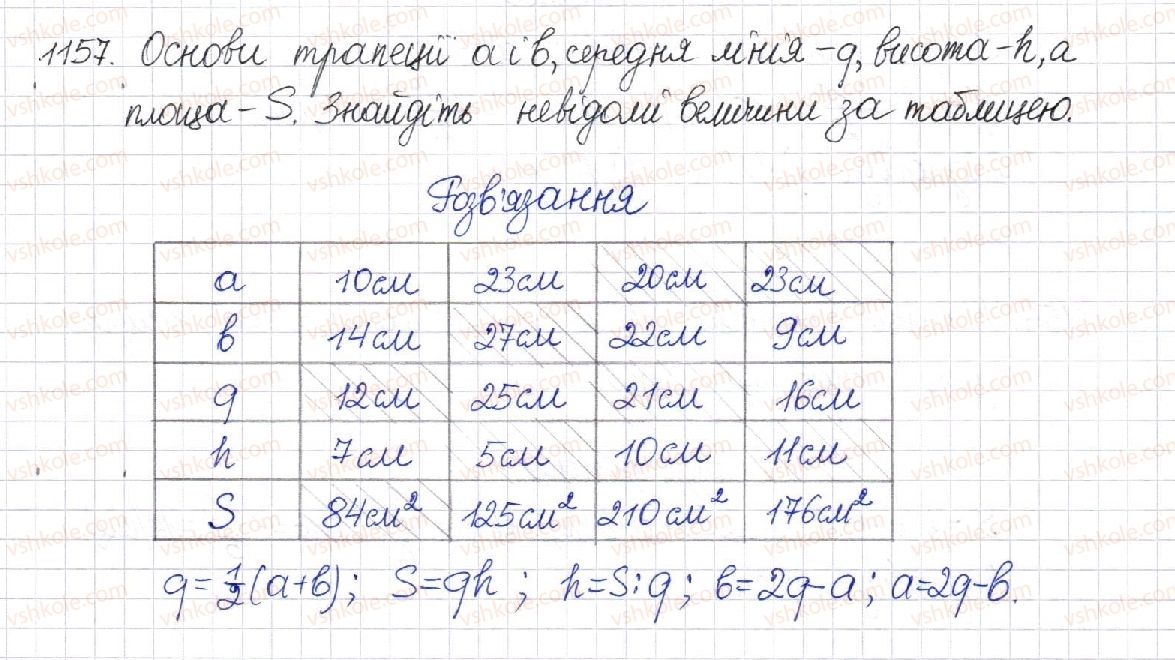 1157. Основи трапеції a і b, середня лінія - q, висота - h, а
площа - S. Знайдіть невідомі величини за таблицею.
Розв'язання
a 10см 23см 20см 23см
b 14см 27см 22см 9см
q 12см 25см 21см 16см
h 7см 5см 10см 11см
S 84см² 125см² 210см² 176см²
q = 1/2 (a+b); S=qh; h=S:q; b=2q-a; a=2q-b.
vshkole.com